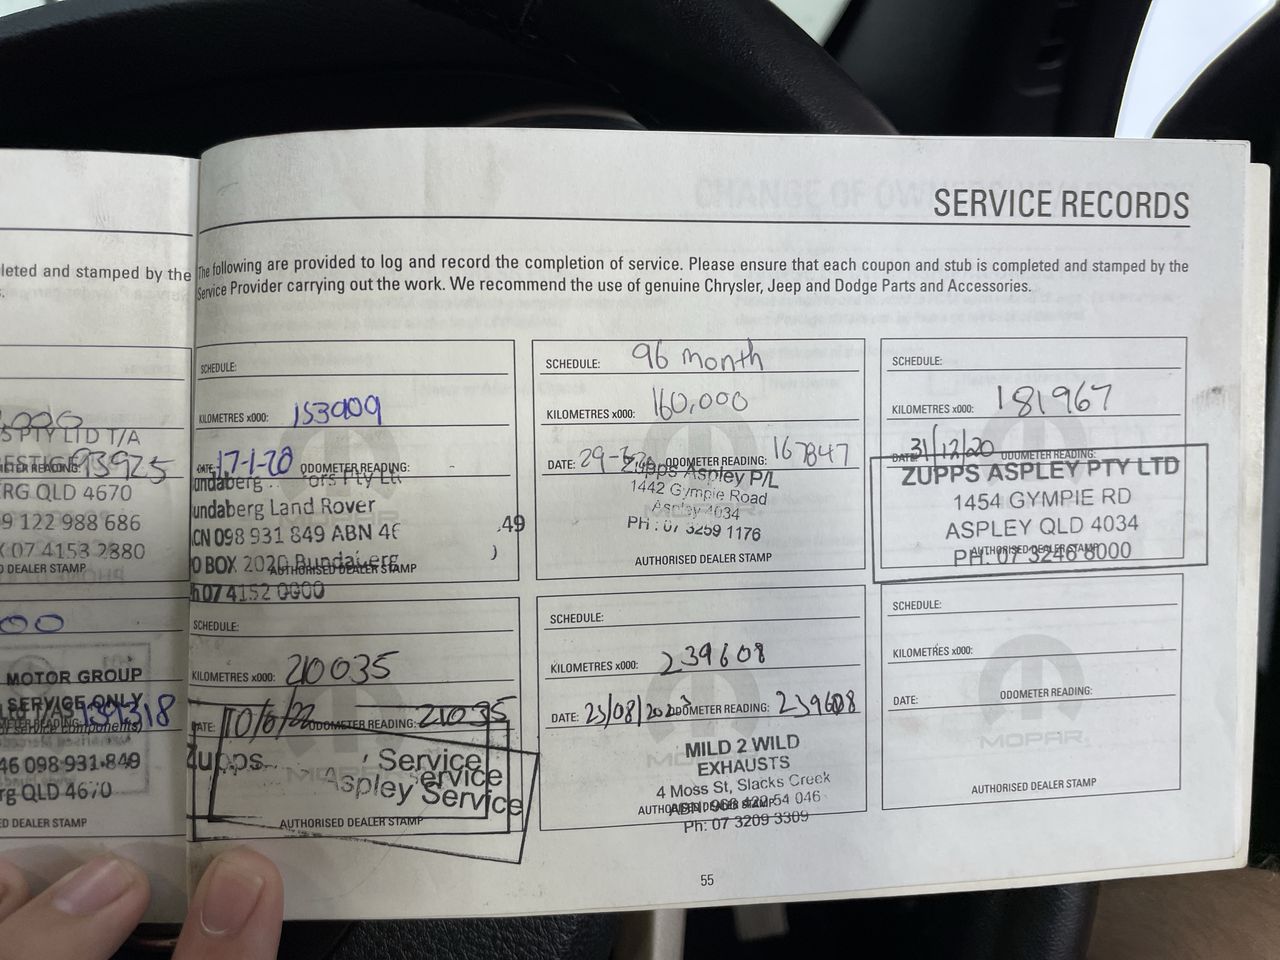 SERVICE RECORDS
leted and stamped by the
The following are provided to log and record the completion of service. Please ensure that each coupon and stub is completed and stamped by the
Service Provider carrying out the work. We recommend the use of genuine Chrysler, Jeep and Dodge Parts and Accessories.
S PTY LTD T/A
METER READING: 93925
RG QLD 4670
9 122 988 686
07 4153 2880
D DEALER STAMP
SCHEDULE:
KILOMETRES x000: 153909
DATE: 17-1-20 ODOMETER READING:
undaberg
undaberg Land Rover
CN 098 931 849 ABN 46
.49
O BOX 2020 Bundaberg
AUTHORISED DEALER STAMP
h 07 4152 0000
SCHEDULE: 96 month
KILOMETRES x000: 160,000
DATE: ODOMETER READING: 167847
Zupps Aspley P/L
1442 Gympie Road
Aspley 4034
PH : 07 3259 1176
AUTHORISED DEALER STAMP
SCHEDULE:
KILOMETRES x000: 181967
DATE: 31/12/20 ODOMETER READING:
ZUPPS ASPLEY PTY LTD
1454 GYMPIE RD
ASPLEY QLD 4034
AUTHORISED DEALER STAMP
PH: 07 3246 8000
00
MOTOR GROUP
SERVICE ONLY
or service components)
46 098 931 849
rg QLD 4670
D DEALER STAMP
SCHEDULE:
KILOMETRES x000: 210035
DATE: 10/6/22 ODOMETER READING: 21035
Zupps
Service
Aspley Service
AUTHORISED DEALER STAMP
SCHEDULE:
KILOMETRES x000: 239608
DATE: 23/08/2023 ODOMETER READING: 239608
MILD 2 WILD
EXHAUSTS
4 Moss St, Slacks Creek
AUTHORISED DEALER STAMP
Ph: 07 3209 3309
SCHEDULE:
KILOMETRES x000:
DATE: ODOMETER READING:
MOPAR
AUTHORISED DEALER STAMP
55